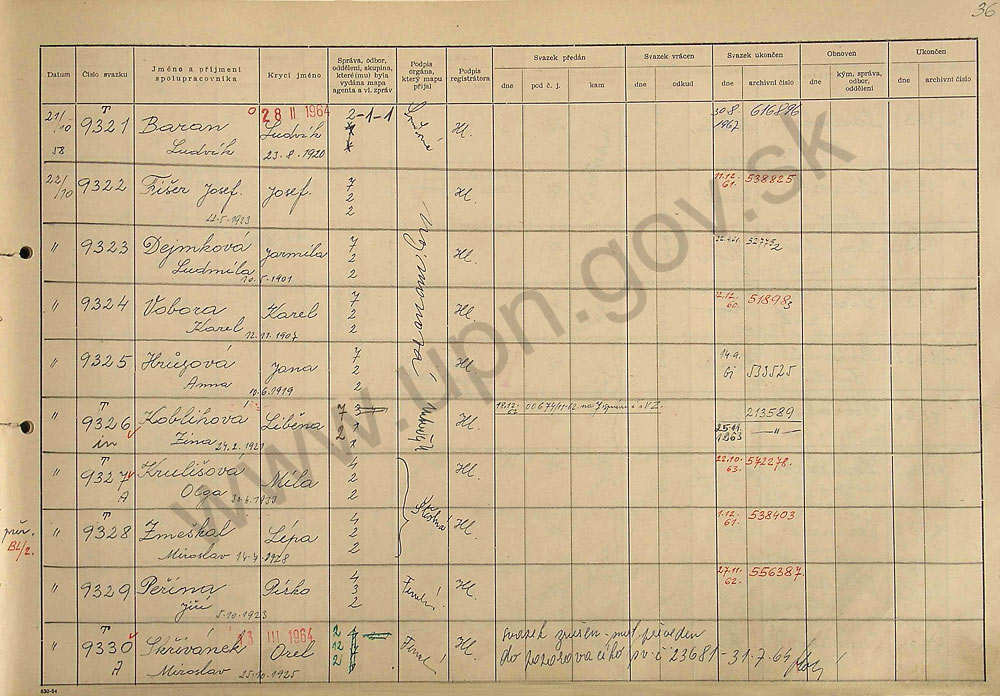 36
Datum
Číslo svazku
Jméno a příjmení spolupracovníka
Krycí jméno
Správa, odbor, oddělení, skupina, které(mu) byla vydána mapa agenta a vl. zpráv
Podpis orgána, který mapu přijal
Podpis registrátora
Svazek předán
dne
pod č. j.
kam
Svazek vrácen
dne
odkud
Svazek ukončen
dne
archivní číslo
Obnoven
dne
kým, správa, odbor, oddělení
Ukončen
dne
archivní číslo
21/10 58
T
9321
Baran
Ludvík
28 II. 1964
Ludvík
23.8.1920
2-1-1
Hl.
30.8. 1967
616896
22/10
9322
Fišer Josef
Josef
7 2 2
Hl.
11.12. 61.
538825
"
9323
Dejmková
Ludmila
10.5.1901
Jarmila
7 2 2
Hl.
"
9324
Vobora
Karel
12.11.1907
Karel
7 2 2
Hl.
12.12. 60.
"
9325
Hrůzová
Anna
10.6.1919
Jana
7 2 2
Hl.
14.9. 61
533525
"
T
9326
in
Koblihova
Zina
Liběna
Hl.
18.12. 62
213589
25.11. 1963
"
"
T
9327
A
Krulišová
Olga
Míla
4 2 2
Hl.
22.10. 63.
572278.
"
T
9328
Zmeškal
Miroslav 14.7.1928
Lípa
4 2 2
Hl.
1.12. 61.
538403
BL/2.
"
9329
Peřina
Jiří
5.10.1923
Pírko
4 3 2
Hl.
27.11. 62.
556387.
"
T
9330
A
Skřivánek
Miroslav
III 1964
Orel
25.10.1925
2 12 2
Hl.
svazek zrušen - mat. převeden
do pozorovacího pv. č 23681 - 31.7.64
630-54
www.upn.gov.sk